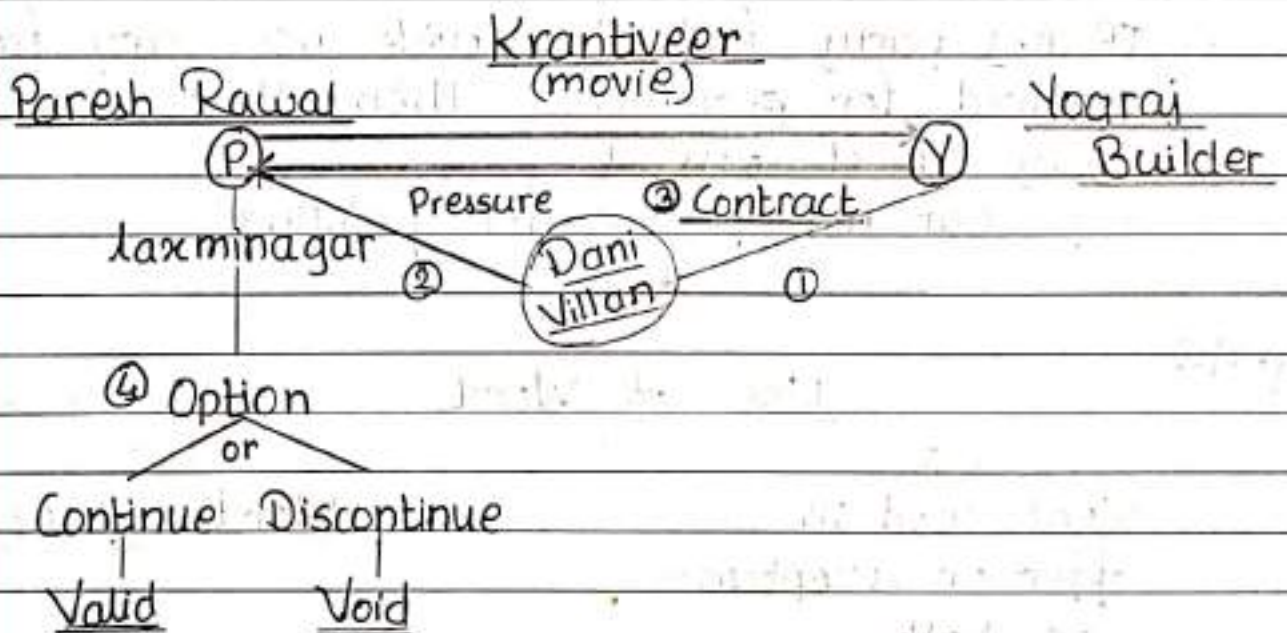 Krantiveer
(movie)
Paresh Rawal
Yograj
Builder
P
Y
Pressure
③ Contract
Laxminagar
Dani
Villan
②
①
④ Option
or
Continue Discontinue
Valid Void